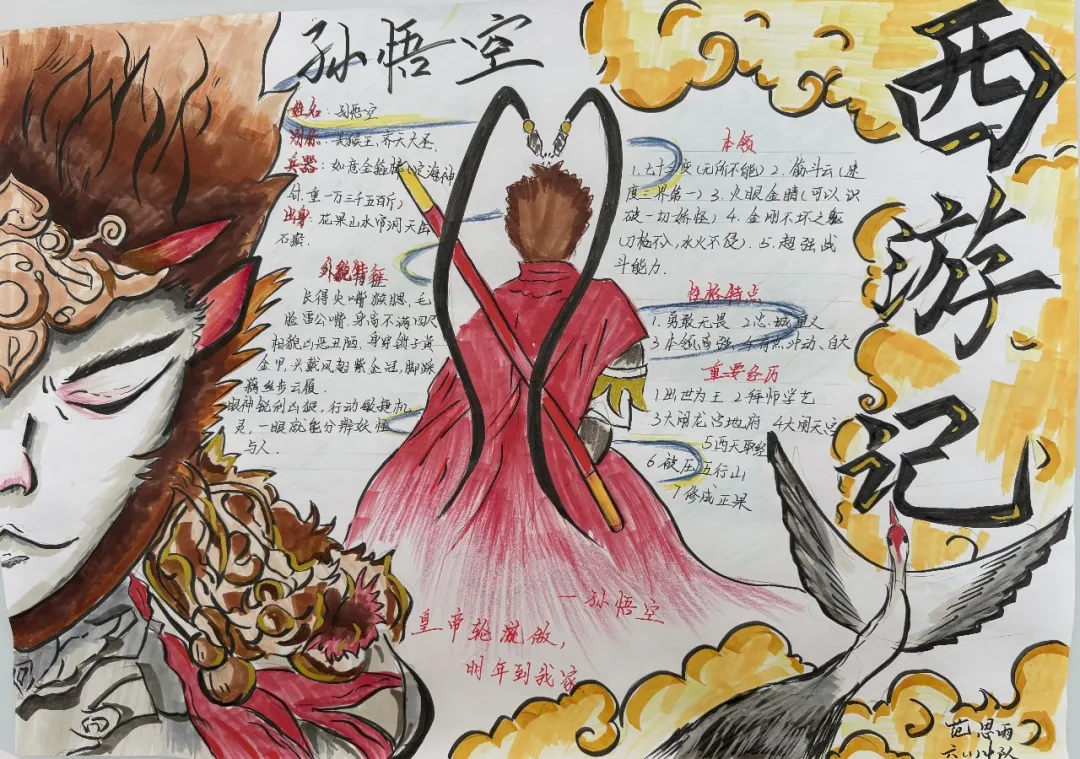 孙悟空
姓名：孙悟空
别称：美猴王、齐天大圣、
兵器：如意金箍棒(定海神
针,重一万三千五百斤)
出身：花果山水帘洞天再
石猴.
外貌特征
长得尖嘴猴腮、毛
脸雷公嘴.身高不满四尺
相貌凶恶丑陋.身穿锁子黄
金甲,头戴凤翅紫金冠,脚踩
藕丝步云履.
眼神锐利凶狠,行动敏捷机
灵.一眼就能分辨妖怪
与人.
本领
1.七十二变(无所不能)2.筋斗云(速
度三界第一)3.火眼金睛(可以识
破一切妖怪)4.金刚不坏之躯
(刀枪不入,水火不侵).5.超强战
斗能力.
性格特点
1.勇敢无畏 2忠诚重义
3本领高强.4有点冲动、自大
重要经历
1出世为王 2拜师学艺
3大闹龙宫地府 4大闹天宫
5西天取经
6被压五行山
7修成正果
西游记
—孙悟空
皇帝轮流做,
明年到我家
范思雨